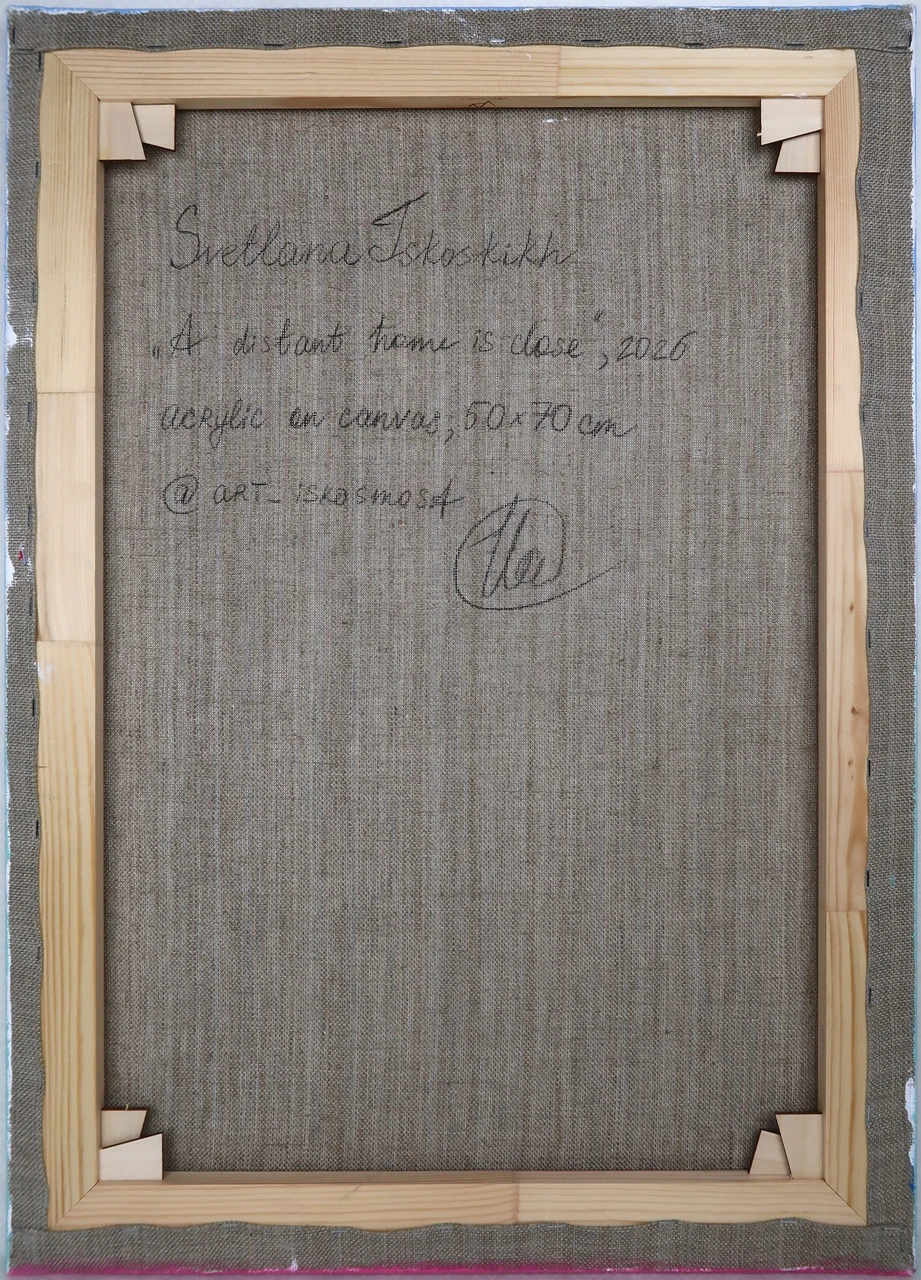 Svetlana Iskoskikh
„A distant home is close“, 2026
acrylic on canvas, 50x70 cm
@ART_iskosmosA